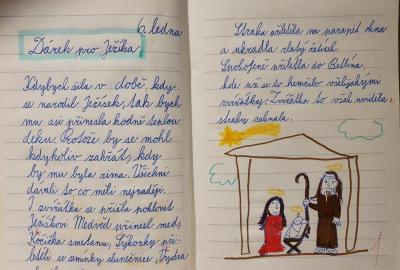 6. ledna
Dárek pro Ježíška
Kdybych žila v době, kdy
se narodil Ježíšek, tak bych
mu asi přinesla hodně teplou
deku. Protože by se mohl
kdykoliv zahřát, kdy
by mu byla zima. Všichni
dávali to co měli nejraději.
I zvířátka se přišla poklonit
Ježíškovi. Medvěd přinesl med,
Kočička smetanu, Sýkorky při-
letěli se semínky slunečnice, Vydra
Straka přilétla na parapet okna
a ukradla zlatý řetízek.
Spokojeně přiletěla do Betléma,
kde už se to hemžilo všelijakými
zvířátky. Zvířátka to však uviděla,
straku zahnala.
1